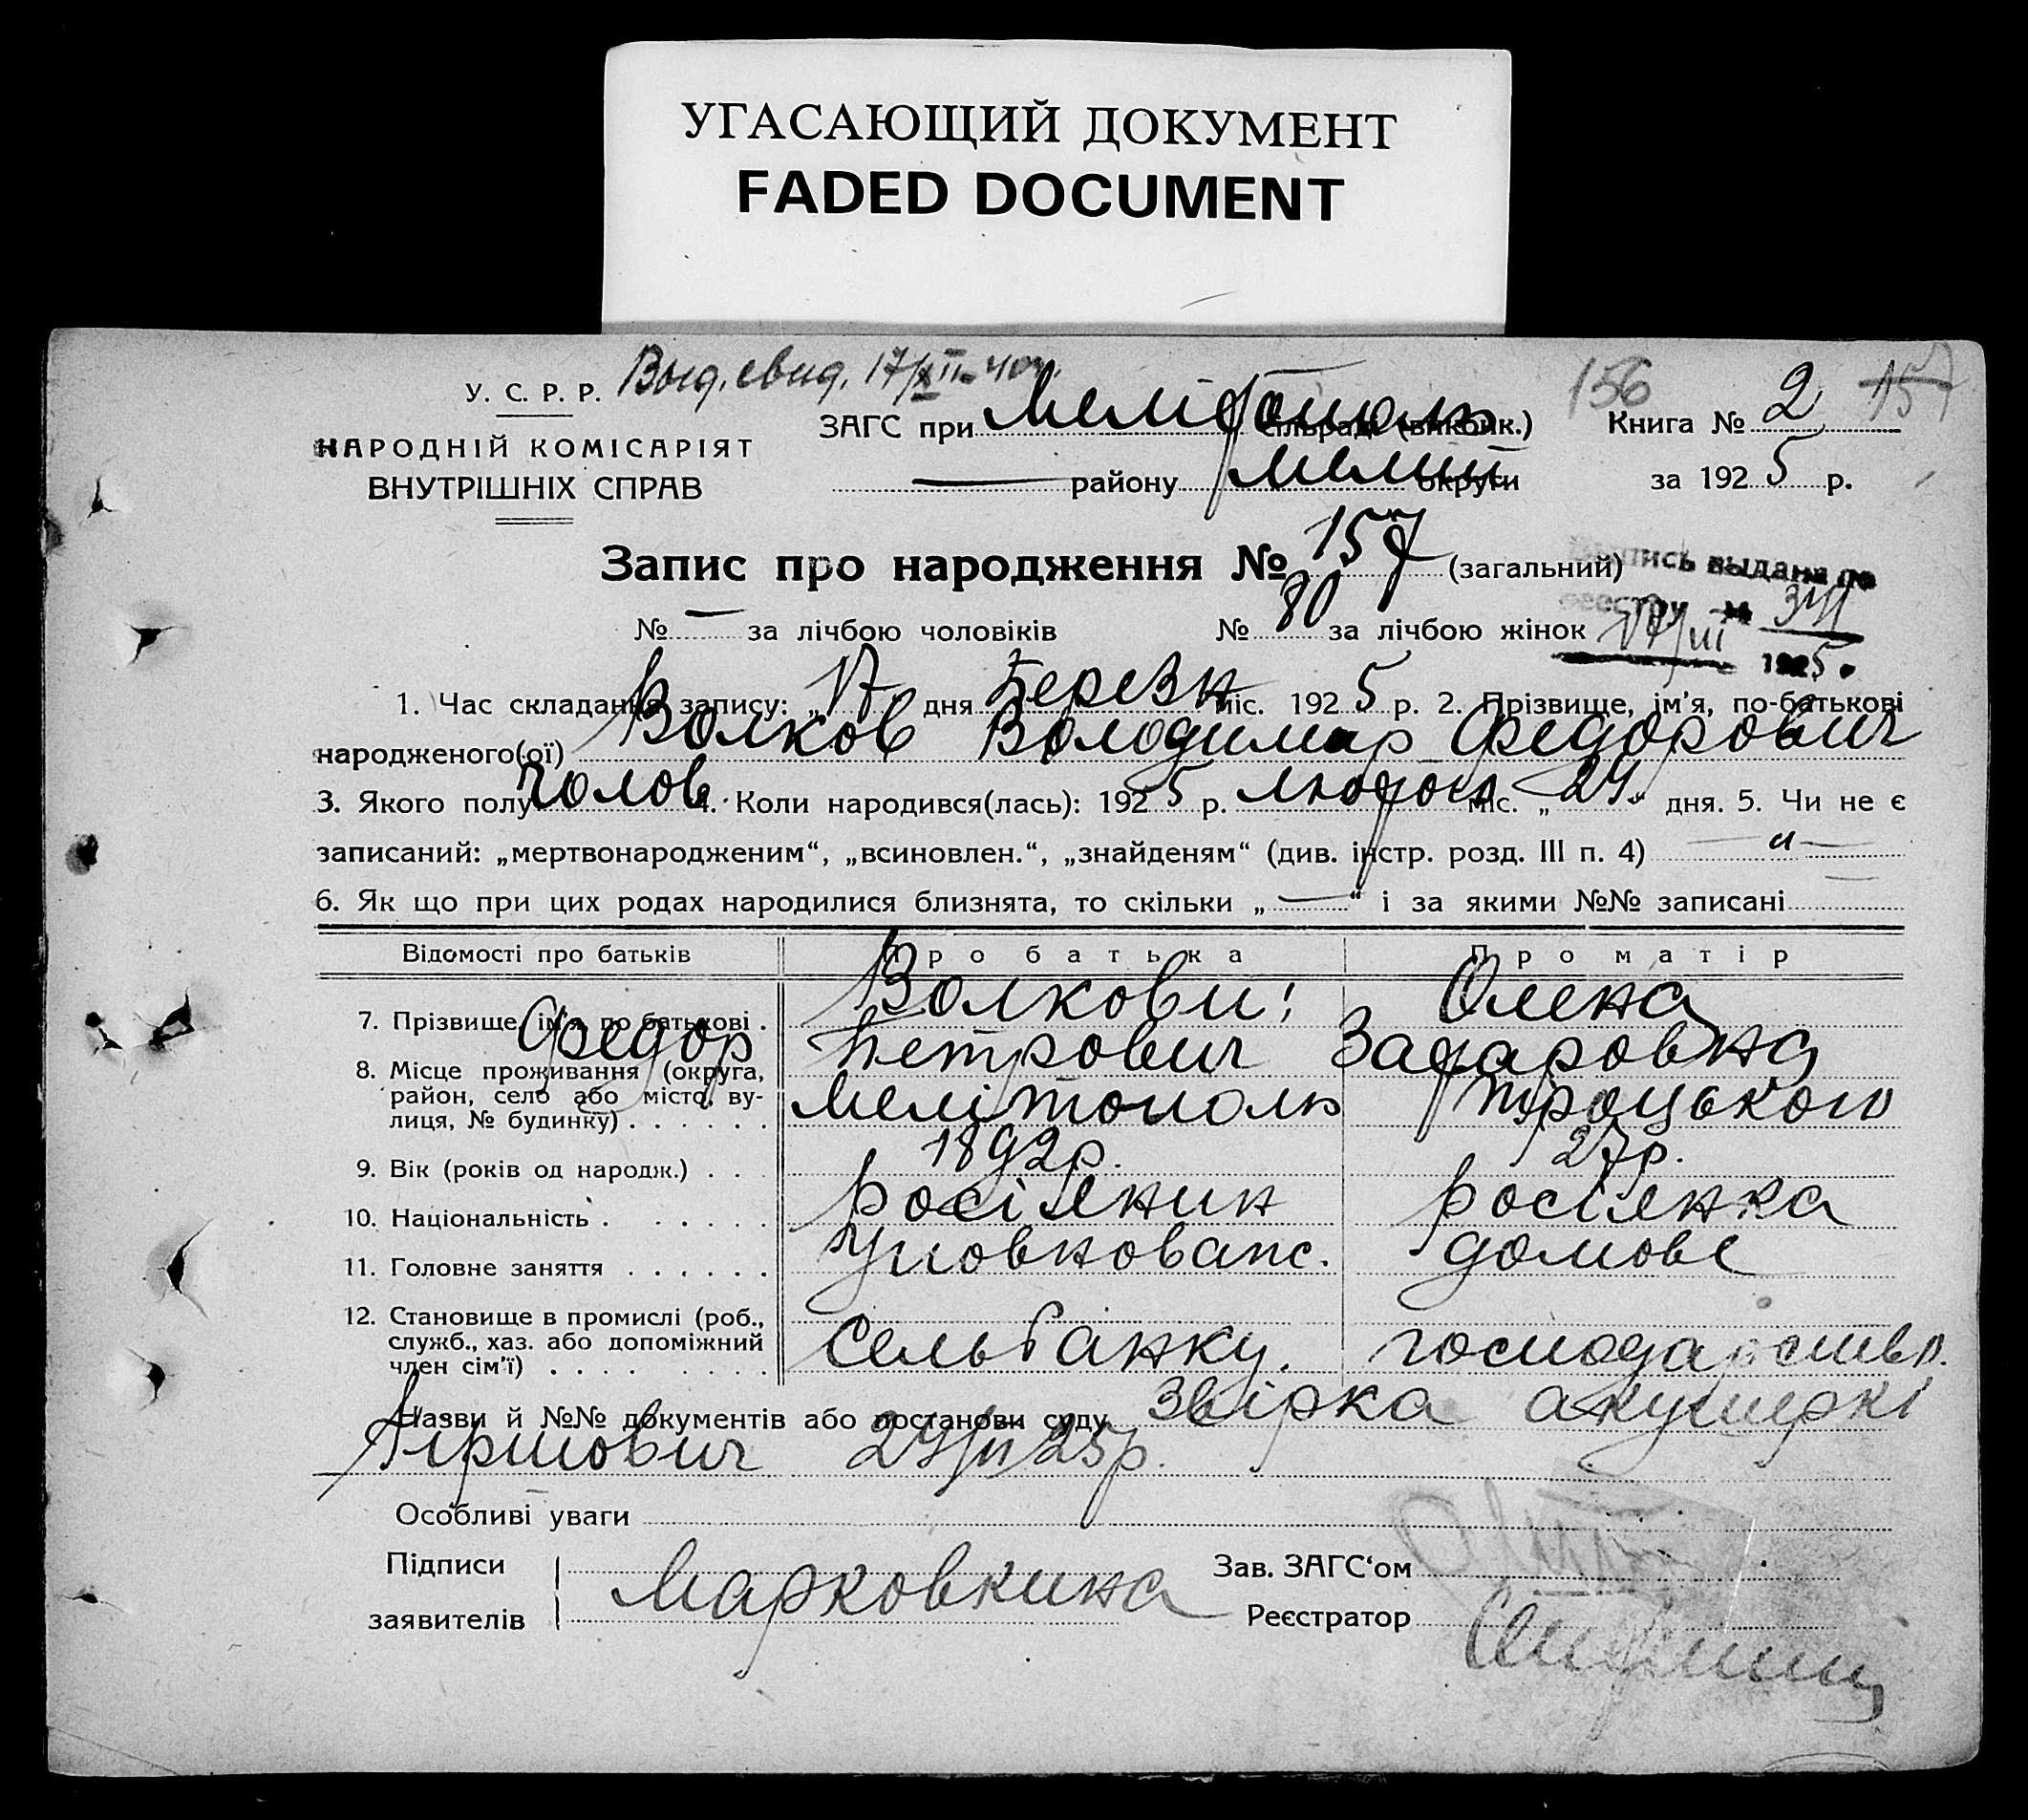 УГАСАЮЩИЙ ДОКУМЕНТ
FADED DOCUMENT
Выд. свид. 17/XII 40г.
156 157
У. С. Р. Р.
НАРОДНІЙ КОМІСАРІЯТ
ВНУТРІШНІХ СПРАВ
ЗАГС при Мелітополь сільраді (викбнк.)
району Мелит округи
Книга № 2
за 1925 р.
Запис про народження № 157 (загальний)
№ — за лічбою чоловіків № 80 за лічбою жінок
Выпись выдана по
реестру № 341
17/III 1925.
1. Час складання запису: „17 дня Березн міс. 1925 р. 2. Прізвище, ім'я, по-батькові
народженого(ої) Волков Володимир Федорович
3. Якого полу Чолов. 4. Коли народився(лась): 1925 р. лютого міс. „24“ дня. 5. Чи не є
записаний: „мертвонародженим“, „всиновлен.“, „знайденям“ (див. інстр. розд. III п. 4) — „ —
6. Як що при цих родах народилися близнята, то скільки „—“ і за якими №№ записані
Відомості про батьків Про батька Про матір
7. Прізвище, ім'я, по батькові . Волкови: Олена
Федор Петрович Захаровна
8. Місце проживання (округа,
район, село або місто, ву-
лиця, № будинку) . . . . . . Мелітополь Троцького
9. Вік (років од народж.) . . . 1892р. 27р.
10. Національність . . . . . . росіянин росіянка
11. Головне заняття . . . . . . Уповновапс. домове
12. Становище в промислі (роб.,
служб., хаз. або допоміжний
член сім'ї) . . . . . . . . Сельбанку. господарство.
Назви й №№ документів або постанови суду Звірка акушеркі
Гіршович 24/II 25р.
Особливі уваги
Підписи
заявителів
Марковкина
Зав. ЗАГС‘ом
Реєстратор